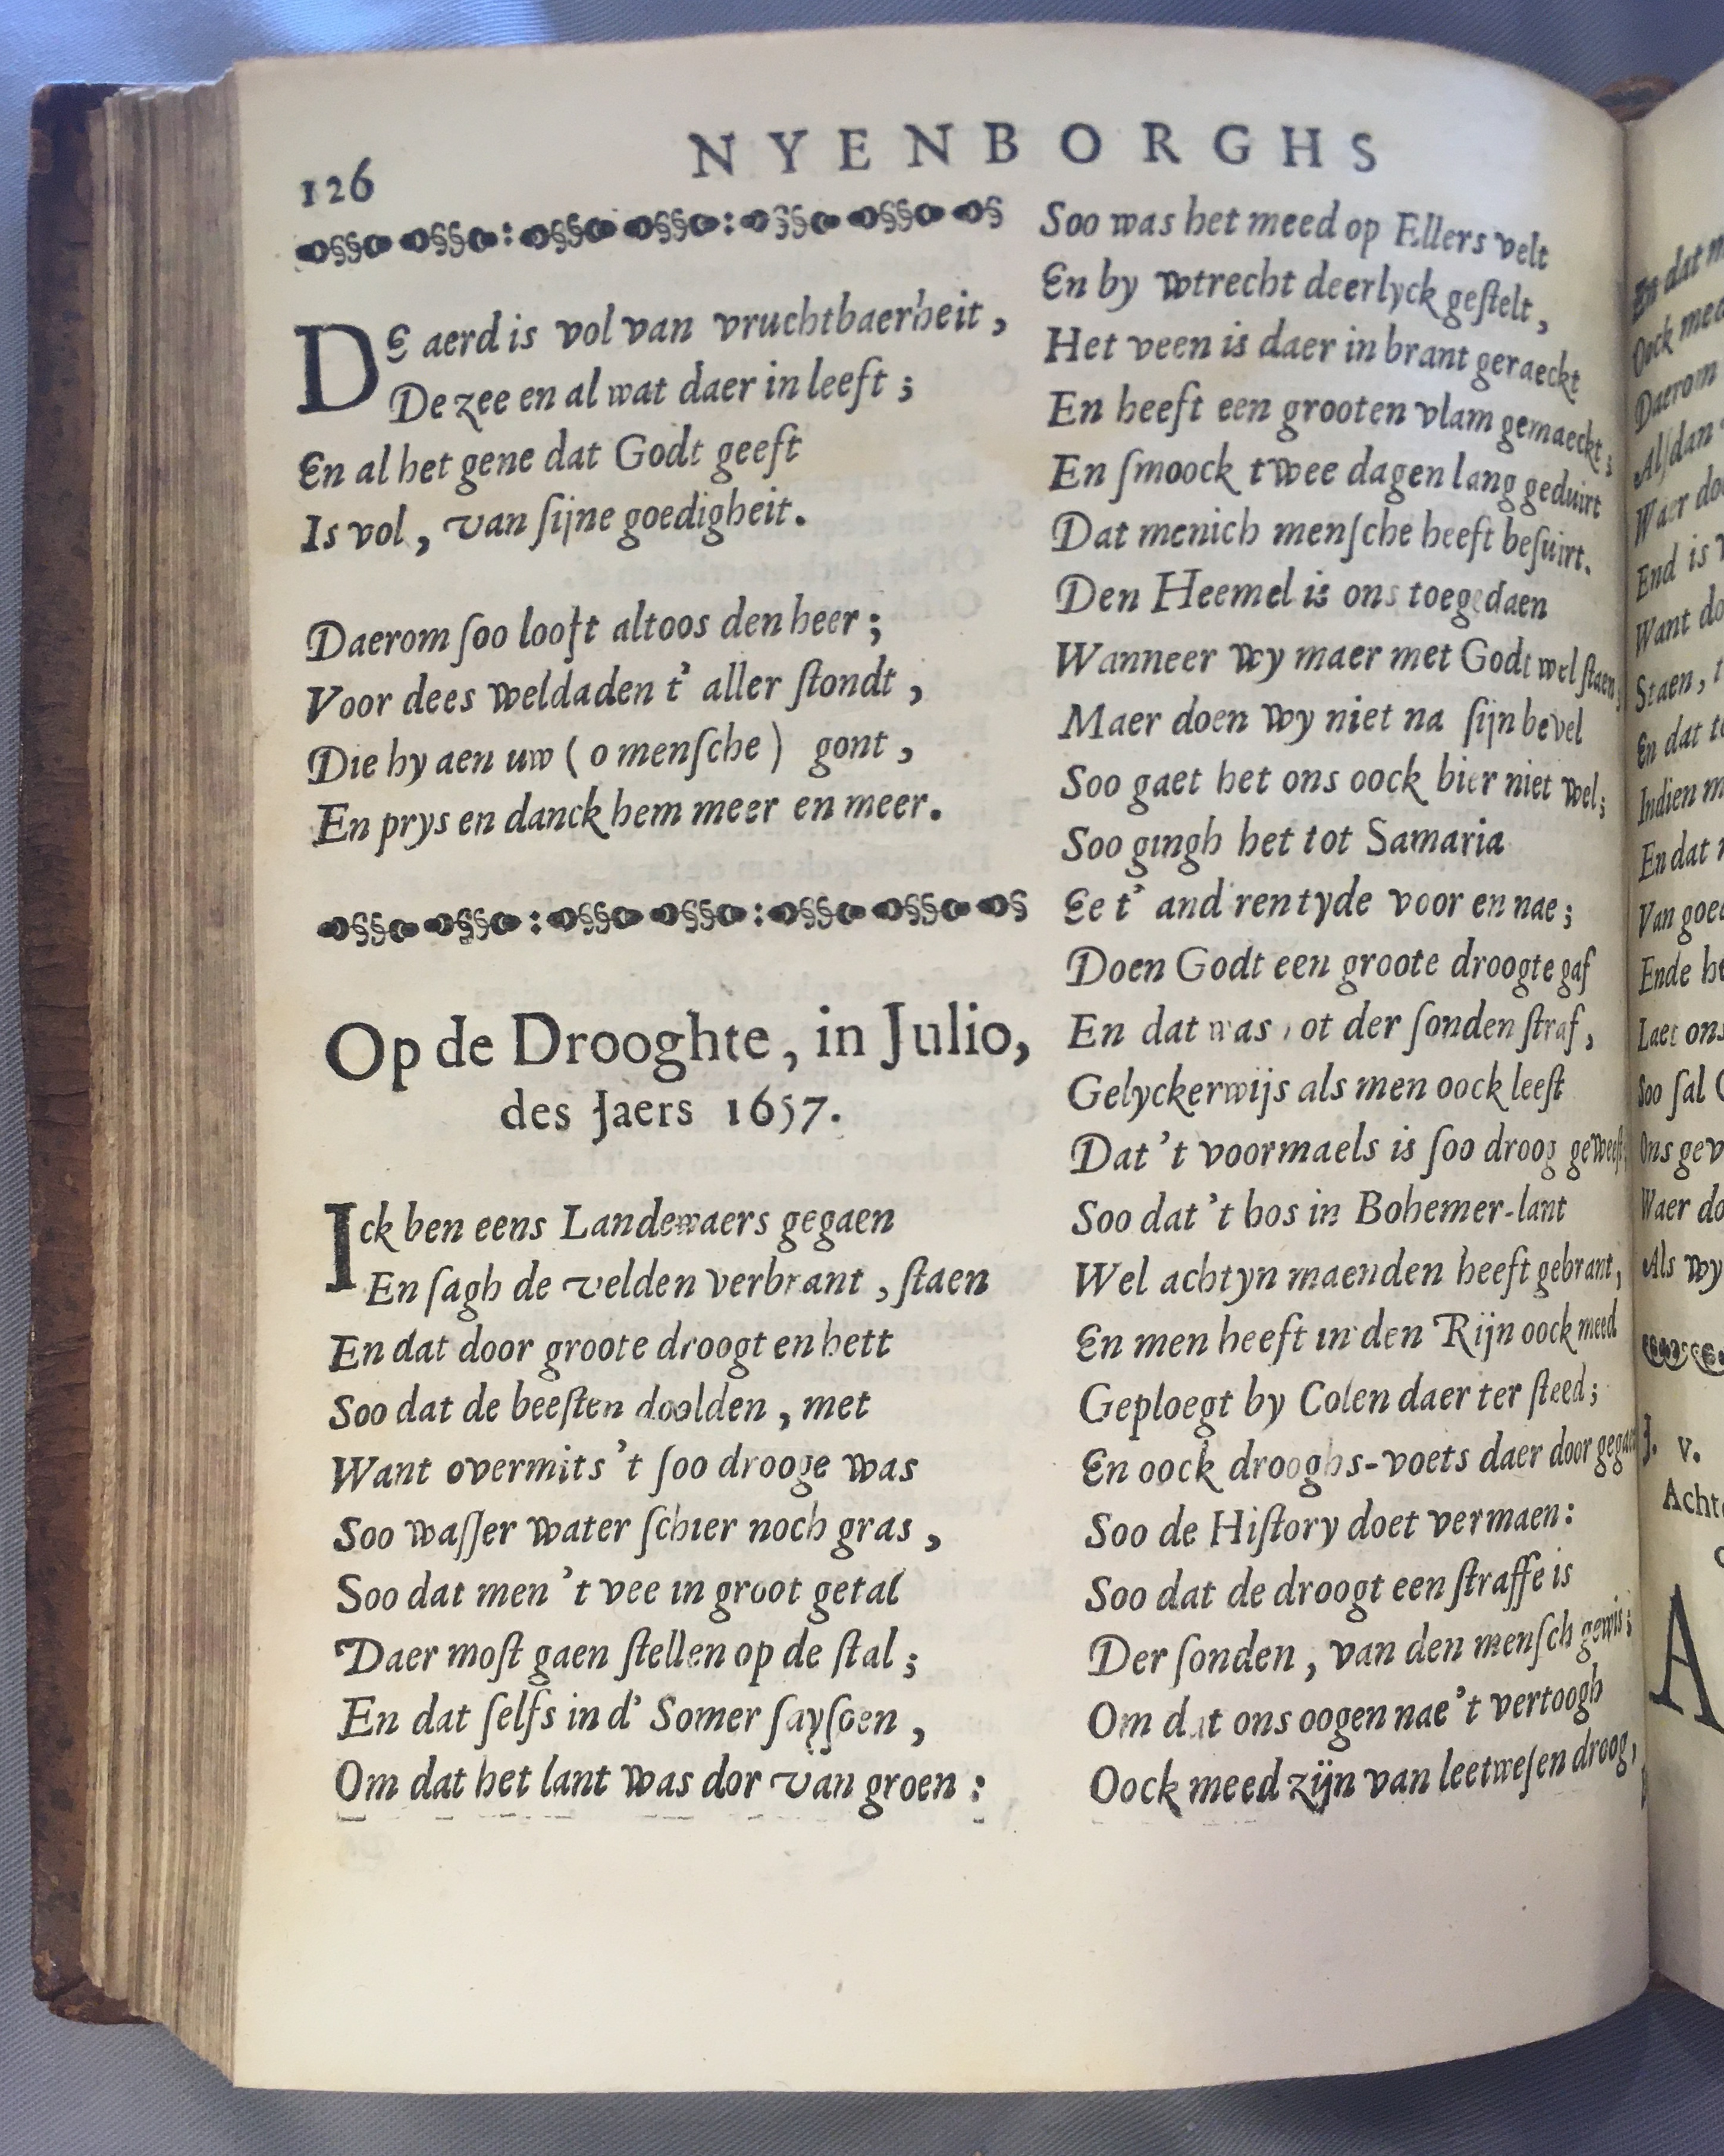 126
NYENBORGHS
DE aerd is vol van vruchtbaerheit,
De zee en al wat daer in leeft;
En al het gene dat Godt geeft
Is vol, van ſijne goedigheit.
Daerom ſoo looft altoos den heer;
Voor dees weldaden t' aller ſtondt,
Die hy aen uw (o menſche) gont,
En prys en danck hem meer en meer.
Op de Drooghte, in Julio,
des Jaers 1657.
Ick ben eens Landewaers gegaen
En ſagh de velden verbrant, ſtaen
En dat door groote droogt en hett
Soo dat de beeſten doolden, met
Want overmits 't ſoo drooge was
Soo waſſer water ſchier noch gras,
Soo dat men 't vee in groot getal
Daer moſt gaen ſtellen op de ſtal;
En dat ſelfs in d' Somer ſayſoen,
Om dat het lant was dor van groen:
Soo was het meed op Ellers velt
En by Wtrecht deerlyck geſtelt,
Het veen is daer in brant geraeckt
En heeft een grooten vlam gemaeckt;
En ſmoock twee dagen lang geduirt
Dat menich menſche heeft beſuirt.
Den Heemel is ons toegedaen
Wanneer wy maer met Godt wel ſtaen;
Maer doen wy niet na ſijn bevel
Soo gaet het ons oock hier niet wel;
Soo gingh het tot Samaria
Ee t' and'ren tyde voor en nae;
Doen Godt een groote droogte gaf
En dat was tot der ſonden ſtraf,
Gelyckerwijs als men oock leeſt
Dat 't voormaels is ſoo droog geweeſt;
Soo dat 't bos in Bohemer-lant
Wel achtyn maenden heeft gebrant,
En men heeft in den Rijn oock meed
Geploegt by Colen daer ter ſteed;
En oock drooghs-voets daer door gegaen
Soo de Hiſtory doet vermaen:
Soo dat de droogt een ſtraffe is
Der ſonden, van den menſch gewis;
Om dat ons oogen nae 't vertoogh
Oock meed zijn van leetweſen droog,
En dat
Oock
Daerom
Alſdan
Waer
End is
Want
Staen,
En dat
Indien
En dat
Van
Ende
Laet ons
Soo ſal
Ons
Waer
Als wy
J. V.
A